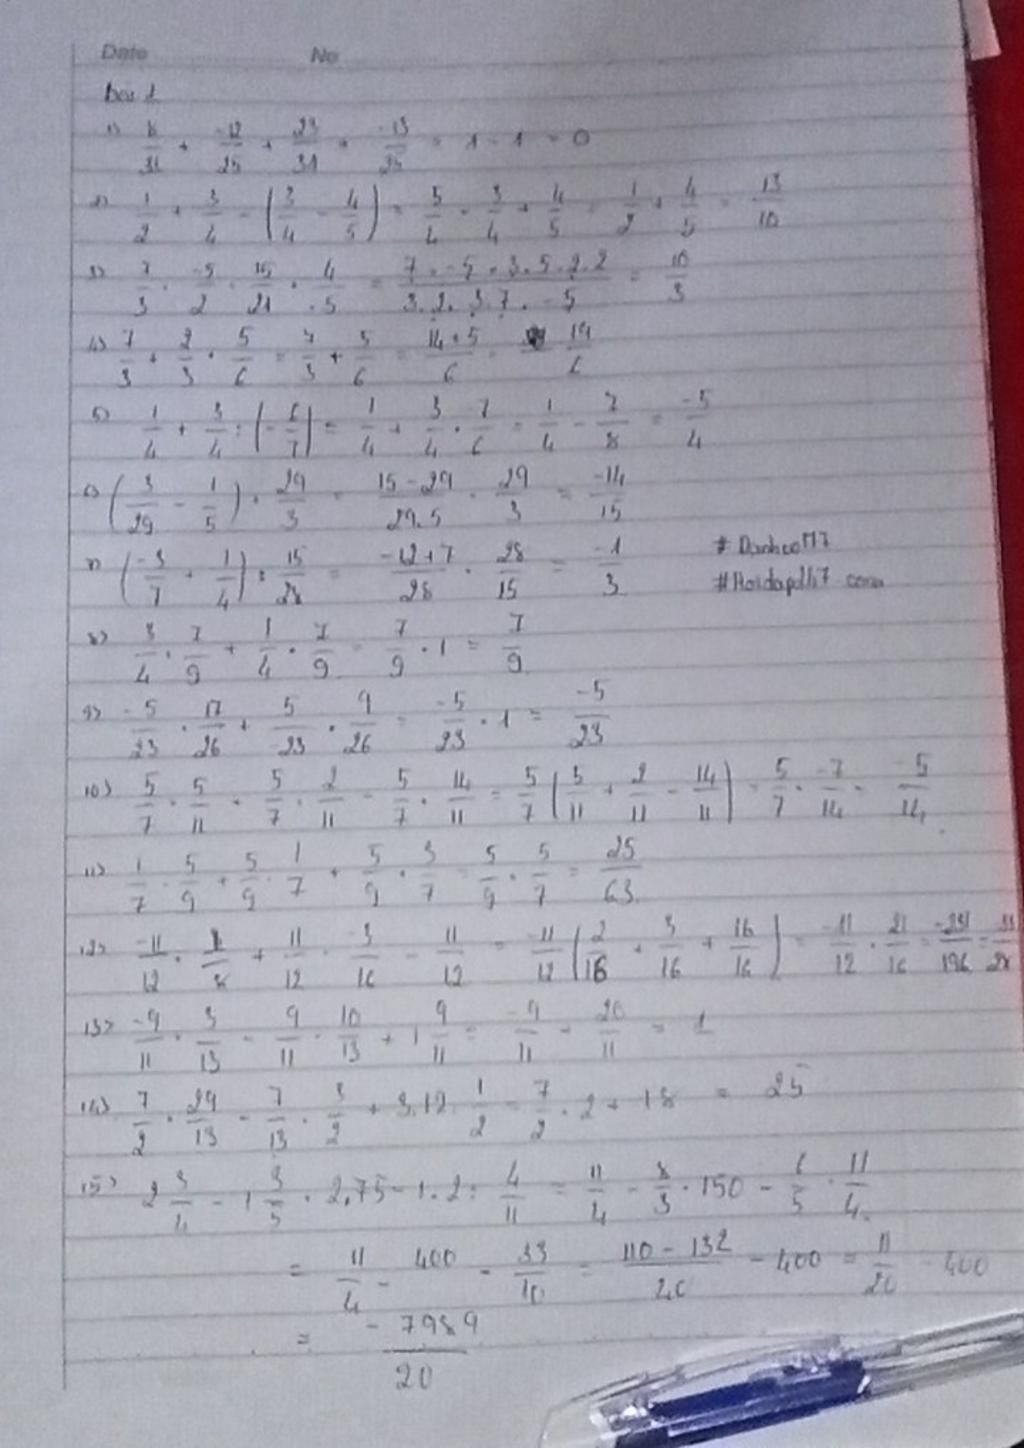 Date No
bài 1
1) 8/31 + -12/25 + 23/31 + -13/25 = 1 - 1 = 0
2) 1/2 + 3/4 - (3/4 - 4/5) = 5/4 - 3/4 + 4/5 = 1/2 + 4/5 = 13/10
3) 7/3 . -5/2 . 15/21 . 4/-5 = 7 . -5 . 3 . 5 . 2 . 2 / 3 . 2 . 3 . 7 . -5 = 10/3
4) 7/3 + 2/3 . 5/6 = 7/3 + 5/6 = 14+5/6 = 19/6
5) 1/4 + 3/4 : (-6/7) = 1/4 + 3/4 . 7/6 = 1/4 - 7/8 = -5/4
6) (3/29 - 1/5) . 29/3 = 15-29/29.5 . 29/3 = -14/15
7) (-3/7 + 1/4) : 15/28 = -12+7/28 . 28/15 = -1/3
#Danhco
#Hoidap
8) 3/4 . 7/9 + 1/4 . 7/9 = 7/9 . 1 = 7/9
9) -5/23 . 17/26 + 5/-23 . 9/26 = -5/23 . 1 = -5/23
10) 5/7 . 5/11 + 5/7 . 2/11 - 5/7 . 14/11 = 5/7 (5/11 + 2/11 - 14/11) = 5/7 . -7/14 = -5/14
11) 1/7 . 5/9 + 5/9 . 1/7 + 5/9 . 3/7 = 5/9 . 5/7 = 25/63
12) -11/12 . + 11/12 . -3/16 - 11/12 = -11/12 (2/16 + 3/16 + 16/16) = -11/12 . 21/16 = -231/196 =
13) -9/11 . 3/13 - 9/11 . 10/13 + 1 9/11 = -9/11 + 20/11 = 1
14) 7/2 . 29/13 - 7/13 . 3/2 + 3.12 . 1/2 = 7/2 . 2 + 18 = 25
15) 2 3/4 - 1 3/5 . 2,75 - 1.2 : 4/11 = 11/4 - 8/3 . 150 - 6/5 . 11/4
= 11/4 - 400 - 33/10 = 110 - 132/40 - 400 = 11/20 - 400
= -7989/20